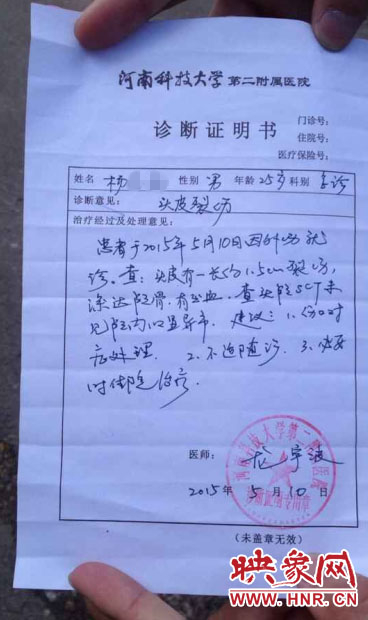 河南科技大学 第二附属医院
门诊号:
诊断证明书
住院号:
医疗保险号:
姓名 杨 性别 男 年龄 25岁 科别 急诊
诊断意见: 头皮裂伤
治疗经过及处理意见:
患者于2015年5月10日因外伤就
诊。查:头皮有一长约1.5cm裂伤,
深达颅骨,有出血。查头颅CT未
见颅内明显异常。建议:1.伤口对
症处理. 2.不适随诊. 3.必要
时住院治疗.
医师: 龙宇
2015年5月10日
河南科技大学第二附属医院
诊断证明专用章
(未盖章无效)
映象网
www.HNR.CN